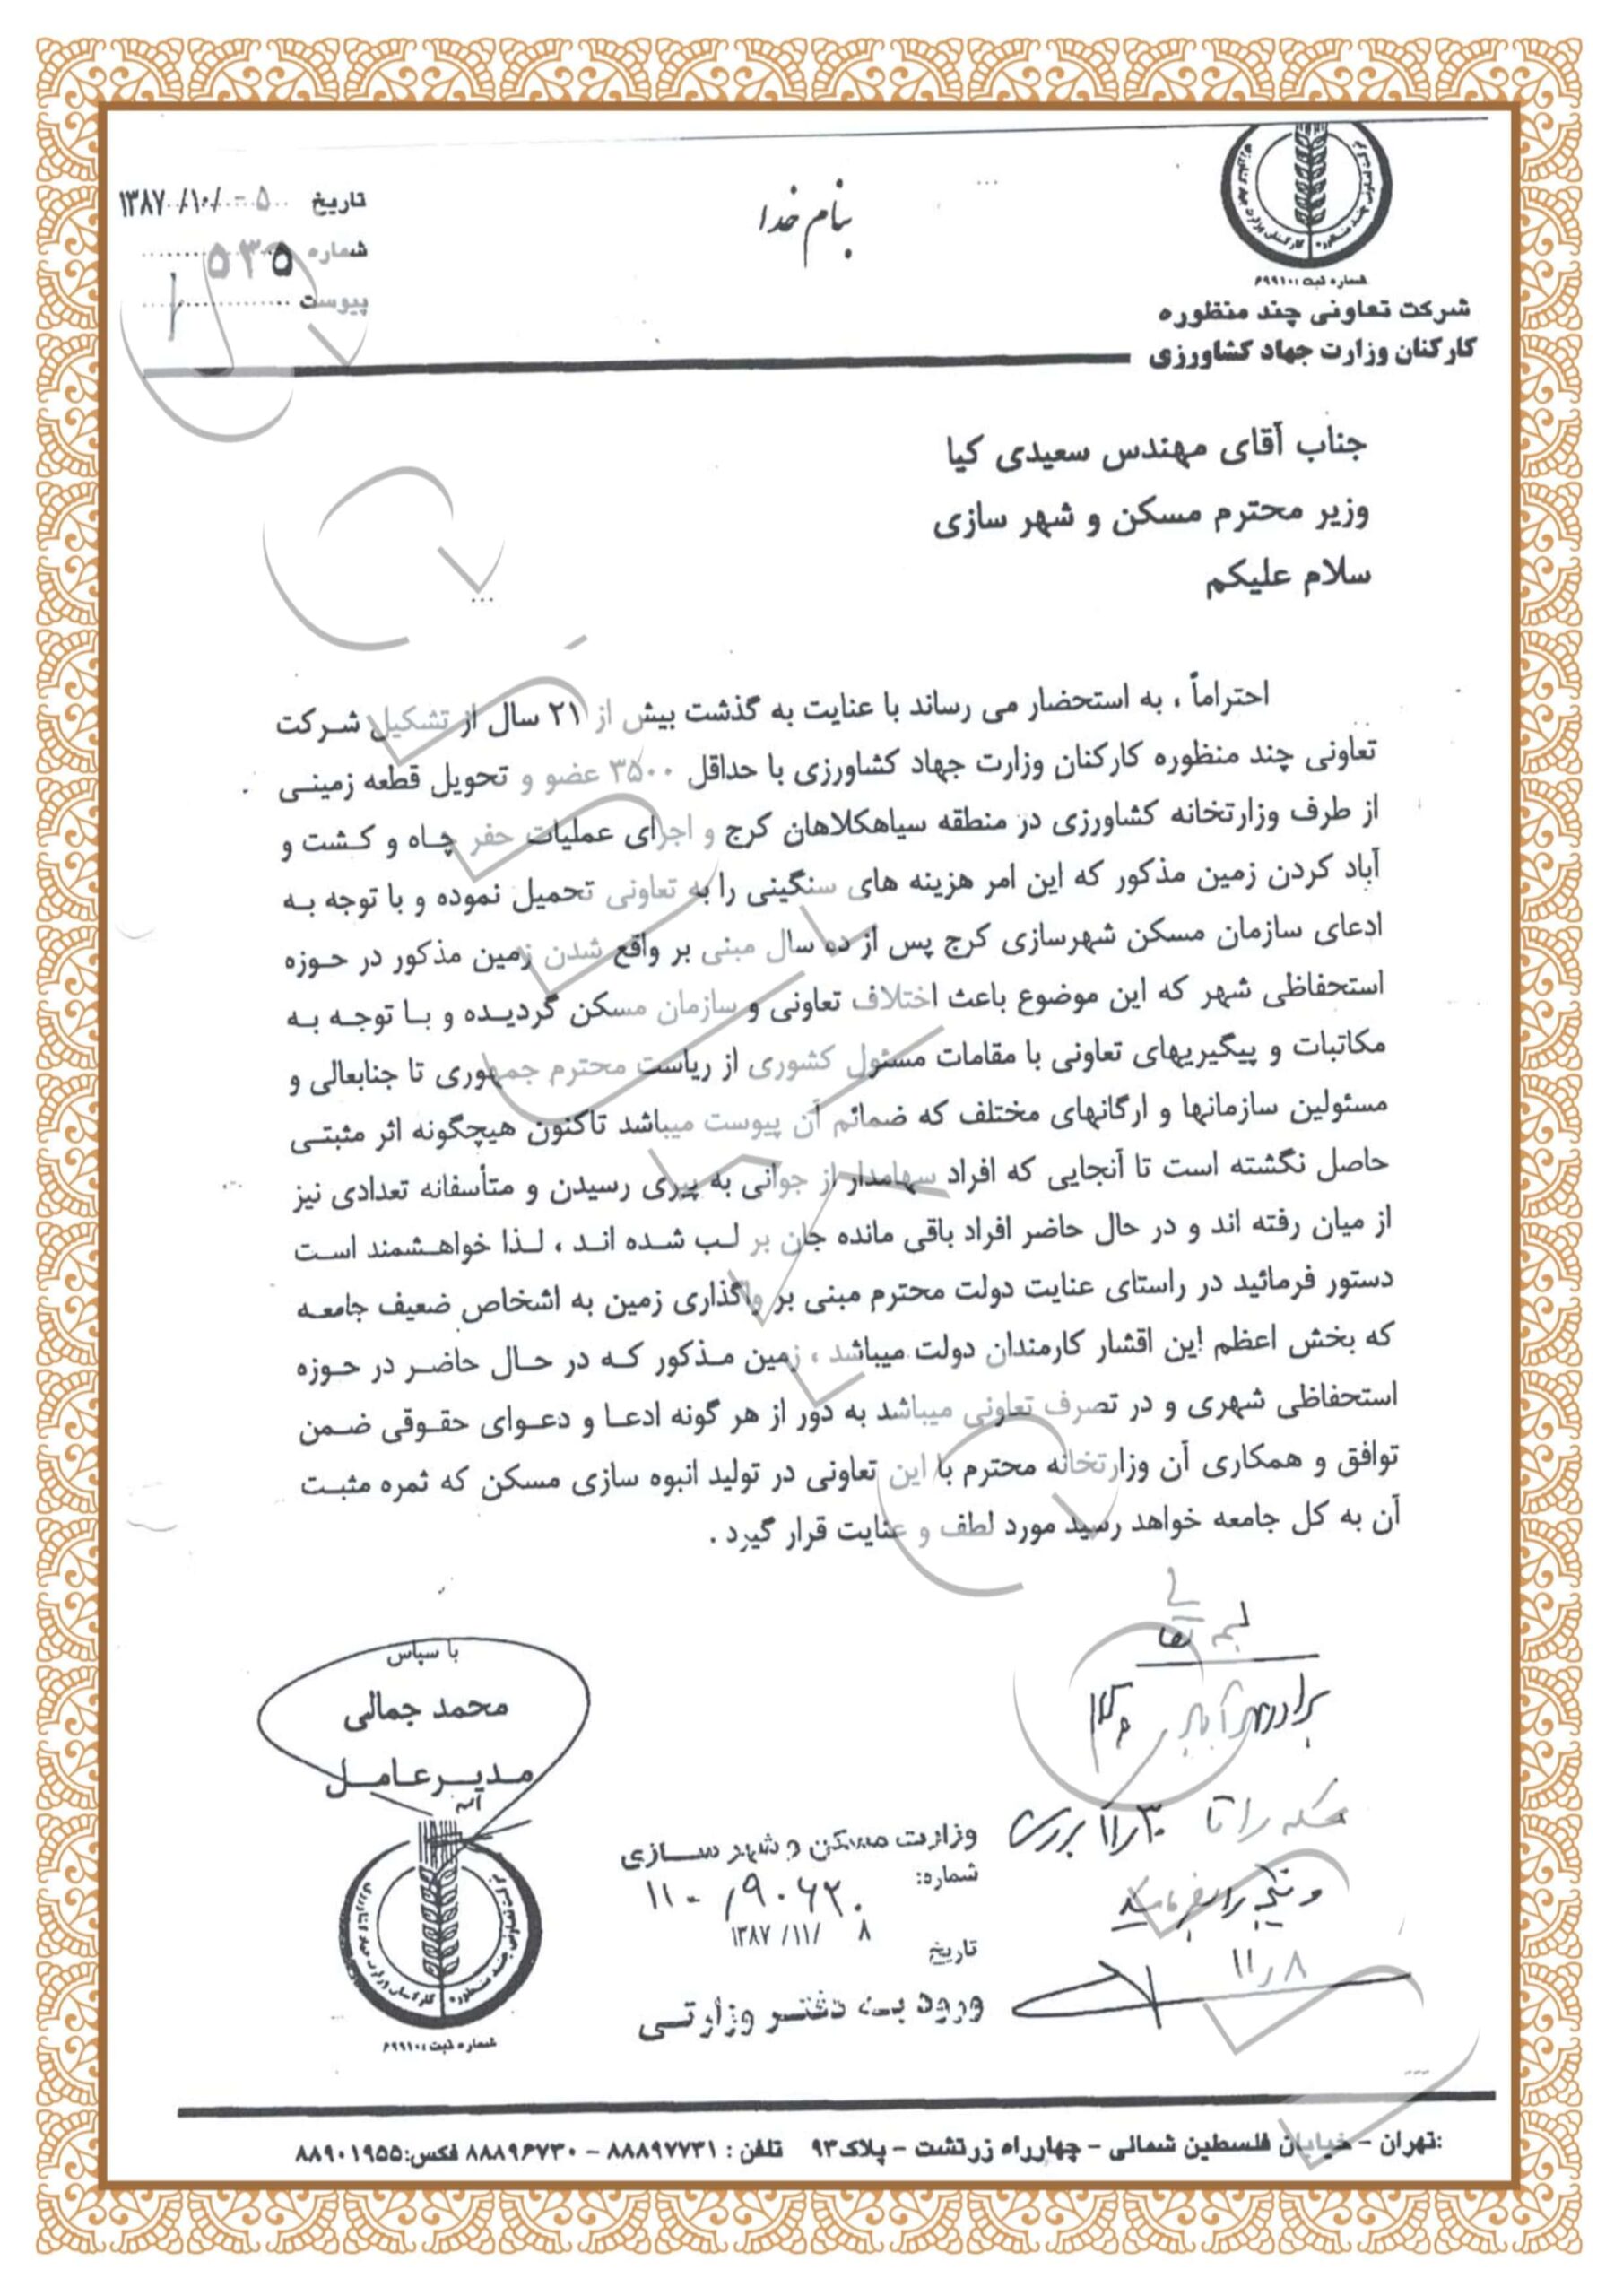 بنام خدا
تاریخ ۵ -/۱۰/ ۱۳۸۷
شماره ۵۳۵
پیوست
شماره ثبت : ۶۹۹۱۰
شرکت تعاونی چند منظوره
کارکنان وزارت جهاد کشاورزی
جناب آقای مهندس سعیدی کیا
وزیر محترم مسکن و شهر سازی
سلام علیکم
احتراماً ، به استحضار می رساند با عنایت به گذشت بیش از ۲۱ سال از تشکیل شرکت
تعاونی چند منظوره کارکنان وزارت جهاد کشاورزی با حداقل ۳۵۰۰ عضو و تحویل قطعه زمینی
از طرف وزارتخانه کشاورزی در منطقه سیاهکلاهان کرج و اجرای عملیات حفر چاه و کشت و
آباد کردن زمین مذکور که این امر هزینه های سنگینی را به تعاونی تحمیل نموده و با توجه به
ادعای سازمان مسکن شهرسازی کرج پس از ده سال مبنی بر واقع شدن زمین مذکور در حوزه
استحفاظی شهر که این موضوع باعث اختلاف تعاونی و سازمان مسکن گردیده و با توجه به
مکاتبات و پیگیریهای تعاونی با مقامات مسئول کشوری از ریاست محترم جمهوری تا جنابعالی و
مسئولین سازمانها و ارگانهای مختلف که ضمائم آن پیوست میباشد تاکنون هیچگونه اثر مثبتی
حاصل نگشته است تا آنجایی که افراد سهامدار از جوانی به پیری رسیدن و متأسفانه تعدادی نیز
از میان رفته اند و در حال حاضر افراد باقی مانده جان بر لب شده اند ، لذا خواهشمند است
دستور فرمائید در راستای عنایت دولت محترم مبنی بر واگذاری زمین به اشخاص ضعیف جامعه
که بخش اعظم این اقشار کارمندان دولت میباشد ، زمین مذکور که در حال حاضر در حوزه
استحفاظی شهری و در تصرف تعاونی میباشد به دور از هر گونه ادعا و دعوای حقوقی ضمن
توافق و همکاری آن وزارتخانه محترم با این تعاونی در تولید انبوه سازی مسکن که ثمره مثبت
آن به کل جامعه خواهد رسید مورد لطف و عنایت قرار گیرد .
با سپاس
محمد جمالی
مدیرعامل
شماره ثبت : ۶۹۹۱۰
را تا ۱۱/۳۰ بررسی
و نتیجه را بفرمائید
۱۱/۸
وزارت مسکن و شهر سازی
شماره: ۱۱۰/۹۰۶۲۰
تاریخ ۸ /۱۱/ ۱۳۸۷
ورود به دفتر وزارتی
:تهران - خیابان فلسطین شمالی - چهارراه زرتشت - پلاک۹۳ تلفن : ۸۸۸۹۷۷۳۱ - ۸۸۸۹۶۷۳۰ فکس:۸۸۹۰۱۹۵۵